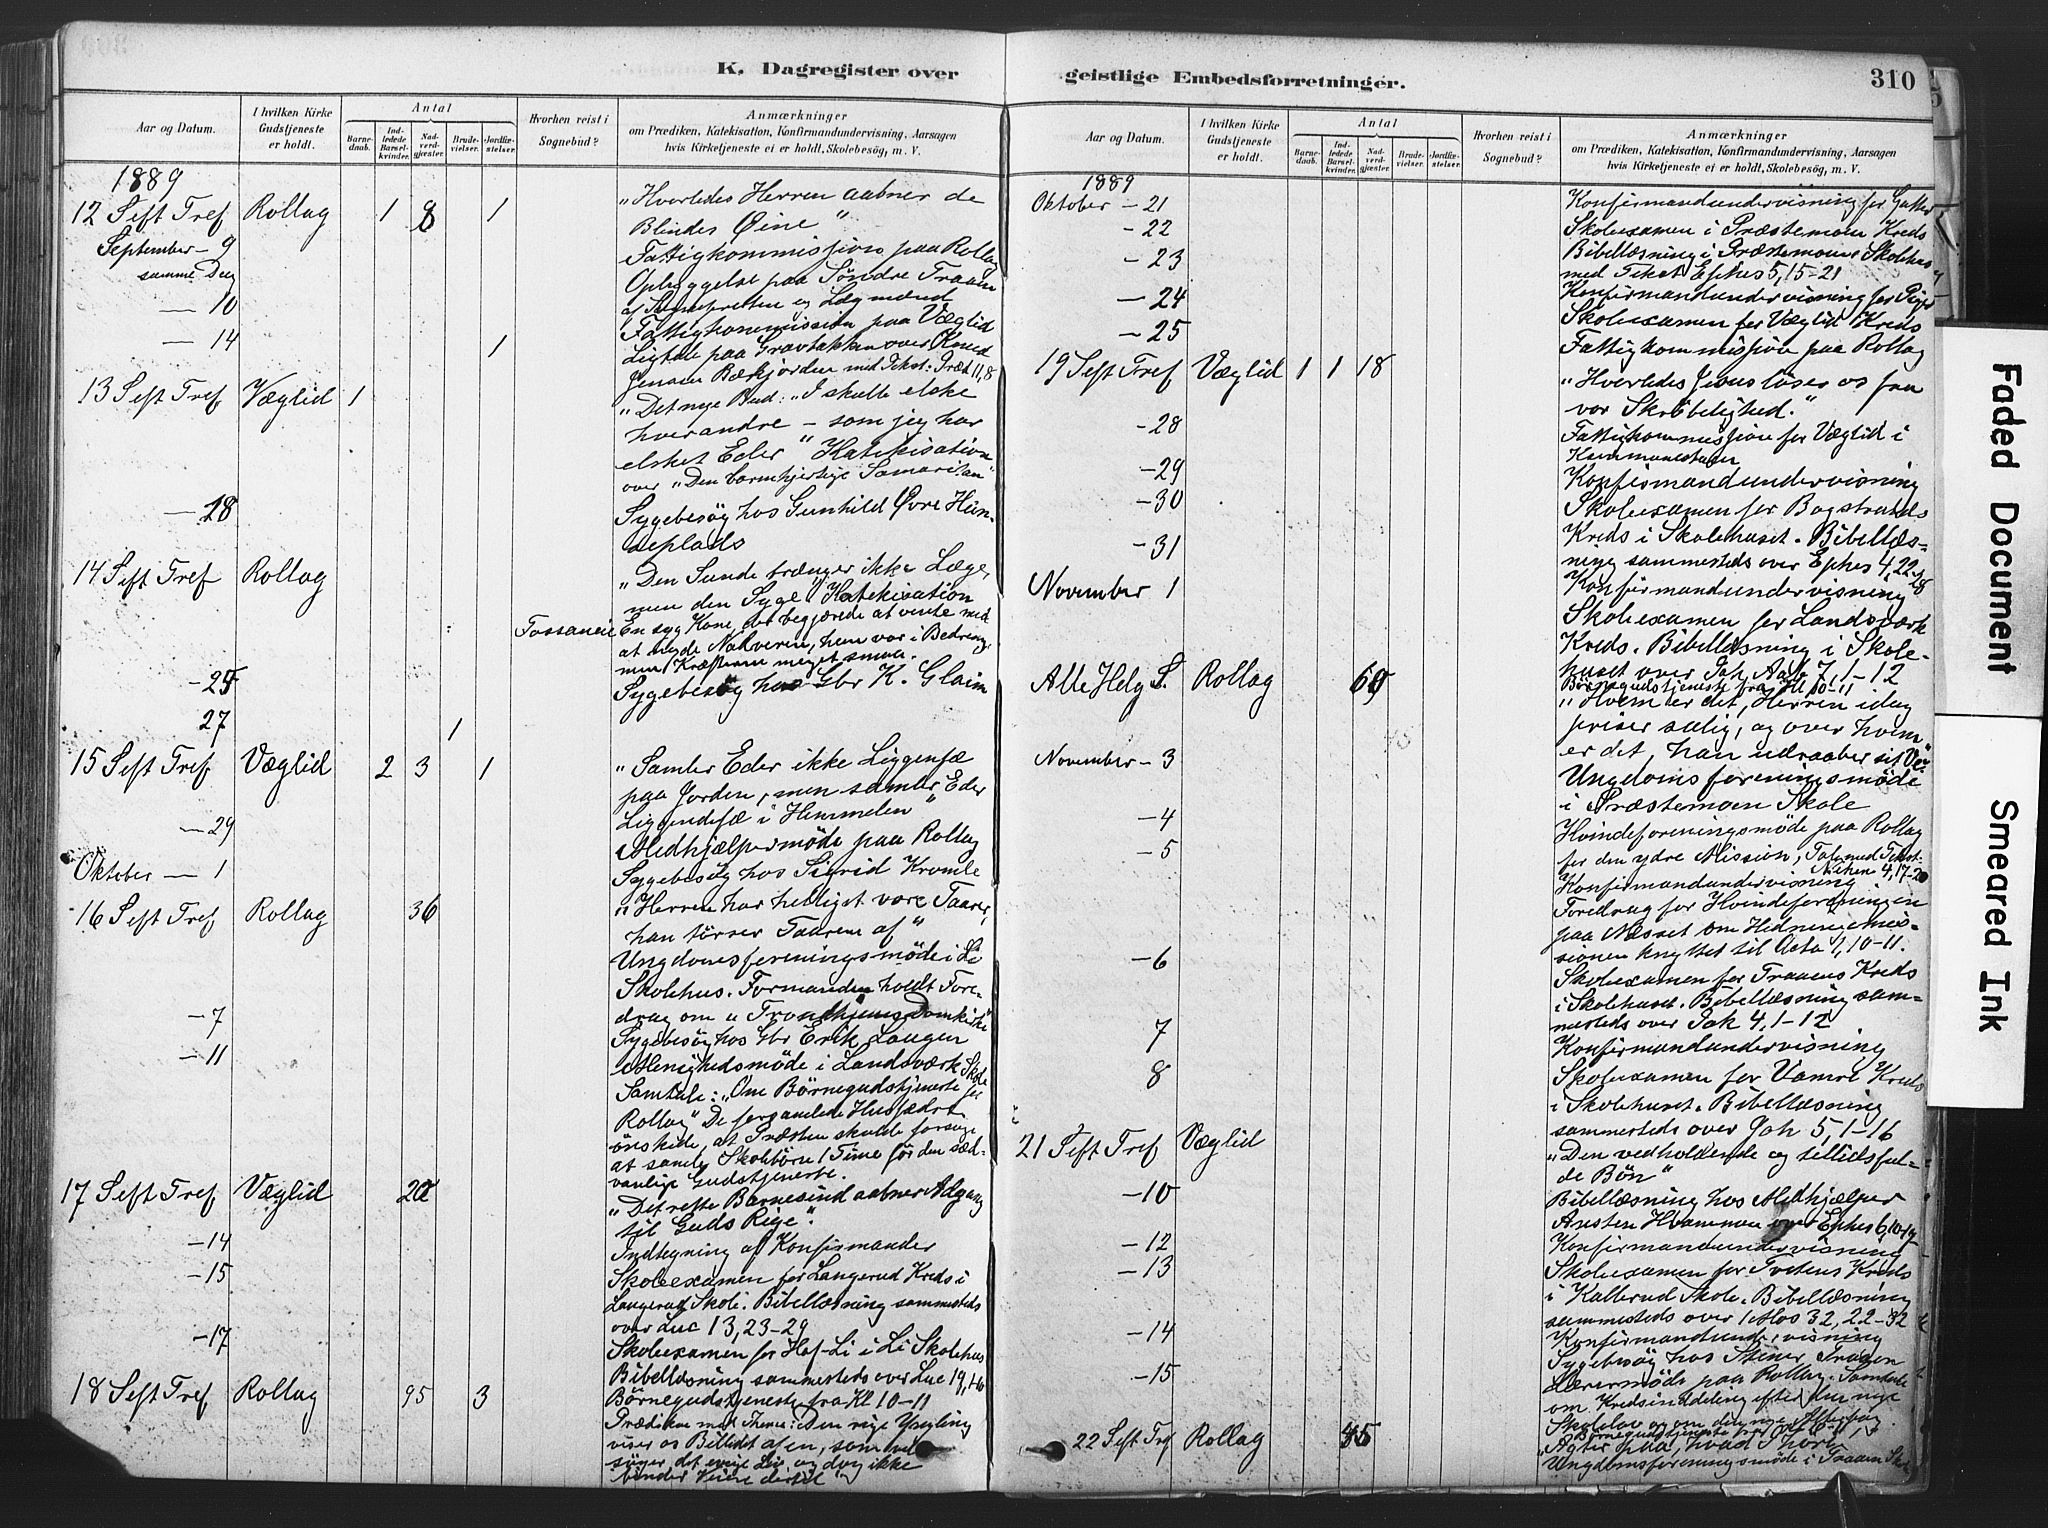 K. Dagregister over
Aar og Datum.
I hvilken Kirke Gudstjeneste er holdt.
Antal
Barnedaab.
Indledede Barselkvinder.
Nadverdgjæster.
Brudevielser.
Jordfæstelser.
Hvorhen reist i Sognebud?
Anmærkninger
om Prædiken, Katekisation, Konfirmandundervisning, Aarsagen
hvis Kirketjeneste ei er holdt, Skolebesøg, m. V.
1889
12 S eft Tref Rollag 1 8 1 „Hvorledes Herren aabner de
Blindes Øine"
September - 9 Fattigkommission paa Rollag
samme Dag Opbyggelse paa Søndre Traaen
af Sognepresten og Lægmænd
— 10 Fattigkommission paa Væglid
— 14 1 Ligtale paa Gravbakken over Knud
Jensen Bækjorden med Tekst: Præd 11,8
13 S eft Tref Væglid 1 „Det nye Bud: „I skulle elske
hverandre — som jeg har
elsket Eder" Katekisation
over „Den barmhjertige Samaritan"
— 18 Sygebesøg hos Gunhild Øvre
14 S eft Tref Rollag „Den Sunde trænger ikke Læge,
men den Syge" Katekisation
En syg Kone, der begjærede at vente med
at nyde Nadveren, hun var i Bedring,
men Kræfterne meget smaa.
— 25 Sygebesøg hos Gbr K. Glaim
27 1
15 S eft Tref Væglid 2 3 1 „Samler Eder ikke Liggendfæ
paa Jorden, men samler Eder
Liggendefæ i Himmelen"
— 29 Medhjælpermøde paa Rollag
Oktober — 1 Sygebesøg hos Sigrid Kromle
16 S eft Tref Rollag 36 „Herren har helliget vore Taarer,
han tørrer Taaren af"
Ungdomsforeningsmøde i Li
Skolehus. Formanden holdt Fore-
drag om „Trondhjems Domkirke"
— 7 Sygebesøg hos Gbr Erik Laugen
— 11 Menighedsmøde i Landsværk Skole
Samtale: „Om Børnegudstjeneste for
Rollag" De forsamlede Husfædre
ønskede, at Præsten skulde forsøge
at samle Skolebørn 1 Time før den sæd-
vanlige Gudstjeneste.
17 S eft Tref Væglid „Det rette Barnesind aabner Adgang
til Guds Rige".
— 14 Indtegning af Konfirmander
— 15 Skoleexamen for Langerud Kreds i
Langerud Skole. Bibellæsning sammesteds
over Luc 13,23-29
— 17 Skoleexamen for Hof-Li i Li Skolehus
Bibellæsning sammesteds over Luc 19,1-6
18 S eft Tref Rollag 95 3 Børnegudstjeneste fra Kl 10-11
Prædiken med Thema: Den rige Yngling
viser os Billedet af en, som vel
søger det evige Liv og dog ikke
finder Veien dertil"
geistlige Embedsforretninger.
310
Aar og Datum.
I hvilken Kirke Gudstjeneste er holdt.
Antal
Barnedaab.
Indledede Barselkvinder.
Nadverdgjæster.
Brudevielser.
Jordfæstelser.
Hvorhen reist i Sognebud?
Anmærkninger
om Prædiken, Katekisation, Konfirmandundervisning, Aarsagen
hvis Kirketjeneste ei er holdt, Skolebesøg, m. V.
1889
Oktober — 21 Konfirmandundervisning for Gutter
— 22 Skoleexamen i Præstemoen Kreds
— 23 Bibellæsning i Præstemoens Skolehus
med Tekst Ephes 5,15-21
— 24 Konfirmandundervisning for Piger
— 25 Skoleexamen for Væglid Kreds
Fattigkommission paa Rollag
19 S eft Tref Væglid 1 1 18 „Hvorledes Jesus løser os fra
vor Skrøbelighed."
— 28 Fattigkommission for Væglid i
— 29 Konfirmandundervisning
— 30 Skoleexamen for Bogstrands
Kreds i Skolehuset. Bibellæs-
ning sammesteds over Ephes 4,22-28
— 31 Konfirmandundervisning
November 1 Skoleexamen for Landsværk
Kreds. Bibellæsning i Skole-
huset over Joh Aab 7,1-12
Alle Helg S. Rollag Børnegudstjeneste fra Kl 10-11
„Hvem er det, Herren idag
priser salig, og over hvem
er det, han udraaber sit Ve"
November — 3 Ungdomsforeningsmøde
i Præstemoen Skole
— 4 Kvindeforeningsmøde paa Rollag
for den ydre Mission, Tale med Tekst:
Nehem 4,17-20
— 5 Konfirmandundervisning
Foredrag for Kvindeforeningen
paa Næsset om Hedningemis-
sionen knyttet til Acta 1,10-11.
— 6 Skoleexamen for Traaens Kreds
i Skolehuset. Bibellæsning sam-
mesteds over Jak 4,1-12
7 Konfirmandundervisning
8 Skoleexamen for Vamre Kreds
i Skolehuset. Bibellæsning
sammesteds over Joh 5,1-16
21 S eft Tref Væglid „Den vedholdende og tillidsful-
de Bøn"
— 10 Bibellæsning hos Medhjælper
Ansten Hvammen over Ephes 6,10-19
— 12 Konfirmandundervisning
— 13 Skoleexamen for Tvetens Kreds
i Kallerud Skole. Bibellæsning
sammesteds over 1 Mos 32, 22-32
— 14 Konfirmandundervisning
Sygebesøg hos Steiner Traaen
— 15 Lærermøde paa Rollag. Samtale
om Kredsinddeling efter den nye
Skolelov og om den nye Alterbog.
22 S eft Tref Rollag 45 Børnegudstjeneste
„Agter paa, hvad I hore"
Ungdomsforeningsmøde i Traaen Skole
Faded Document
Smeared Ink